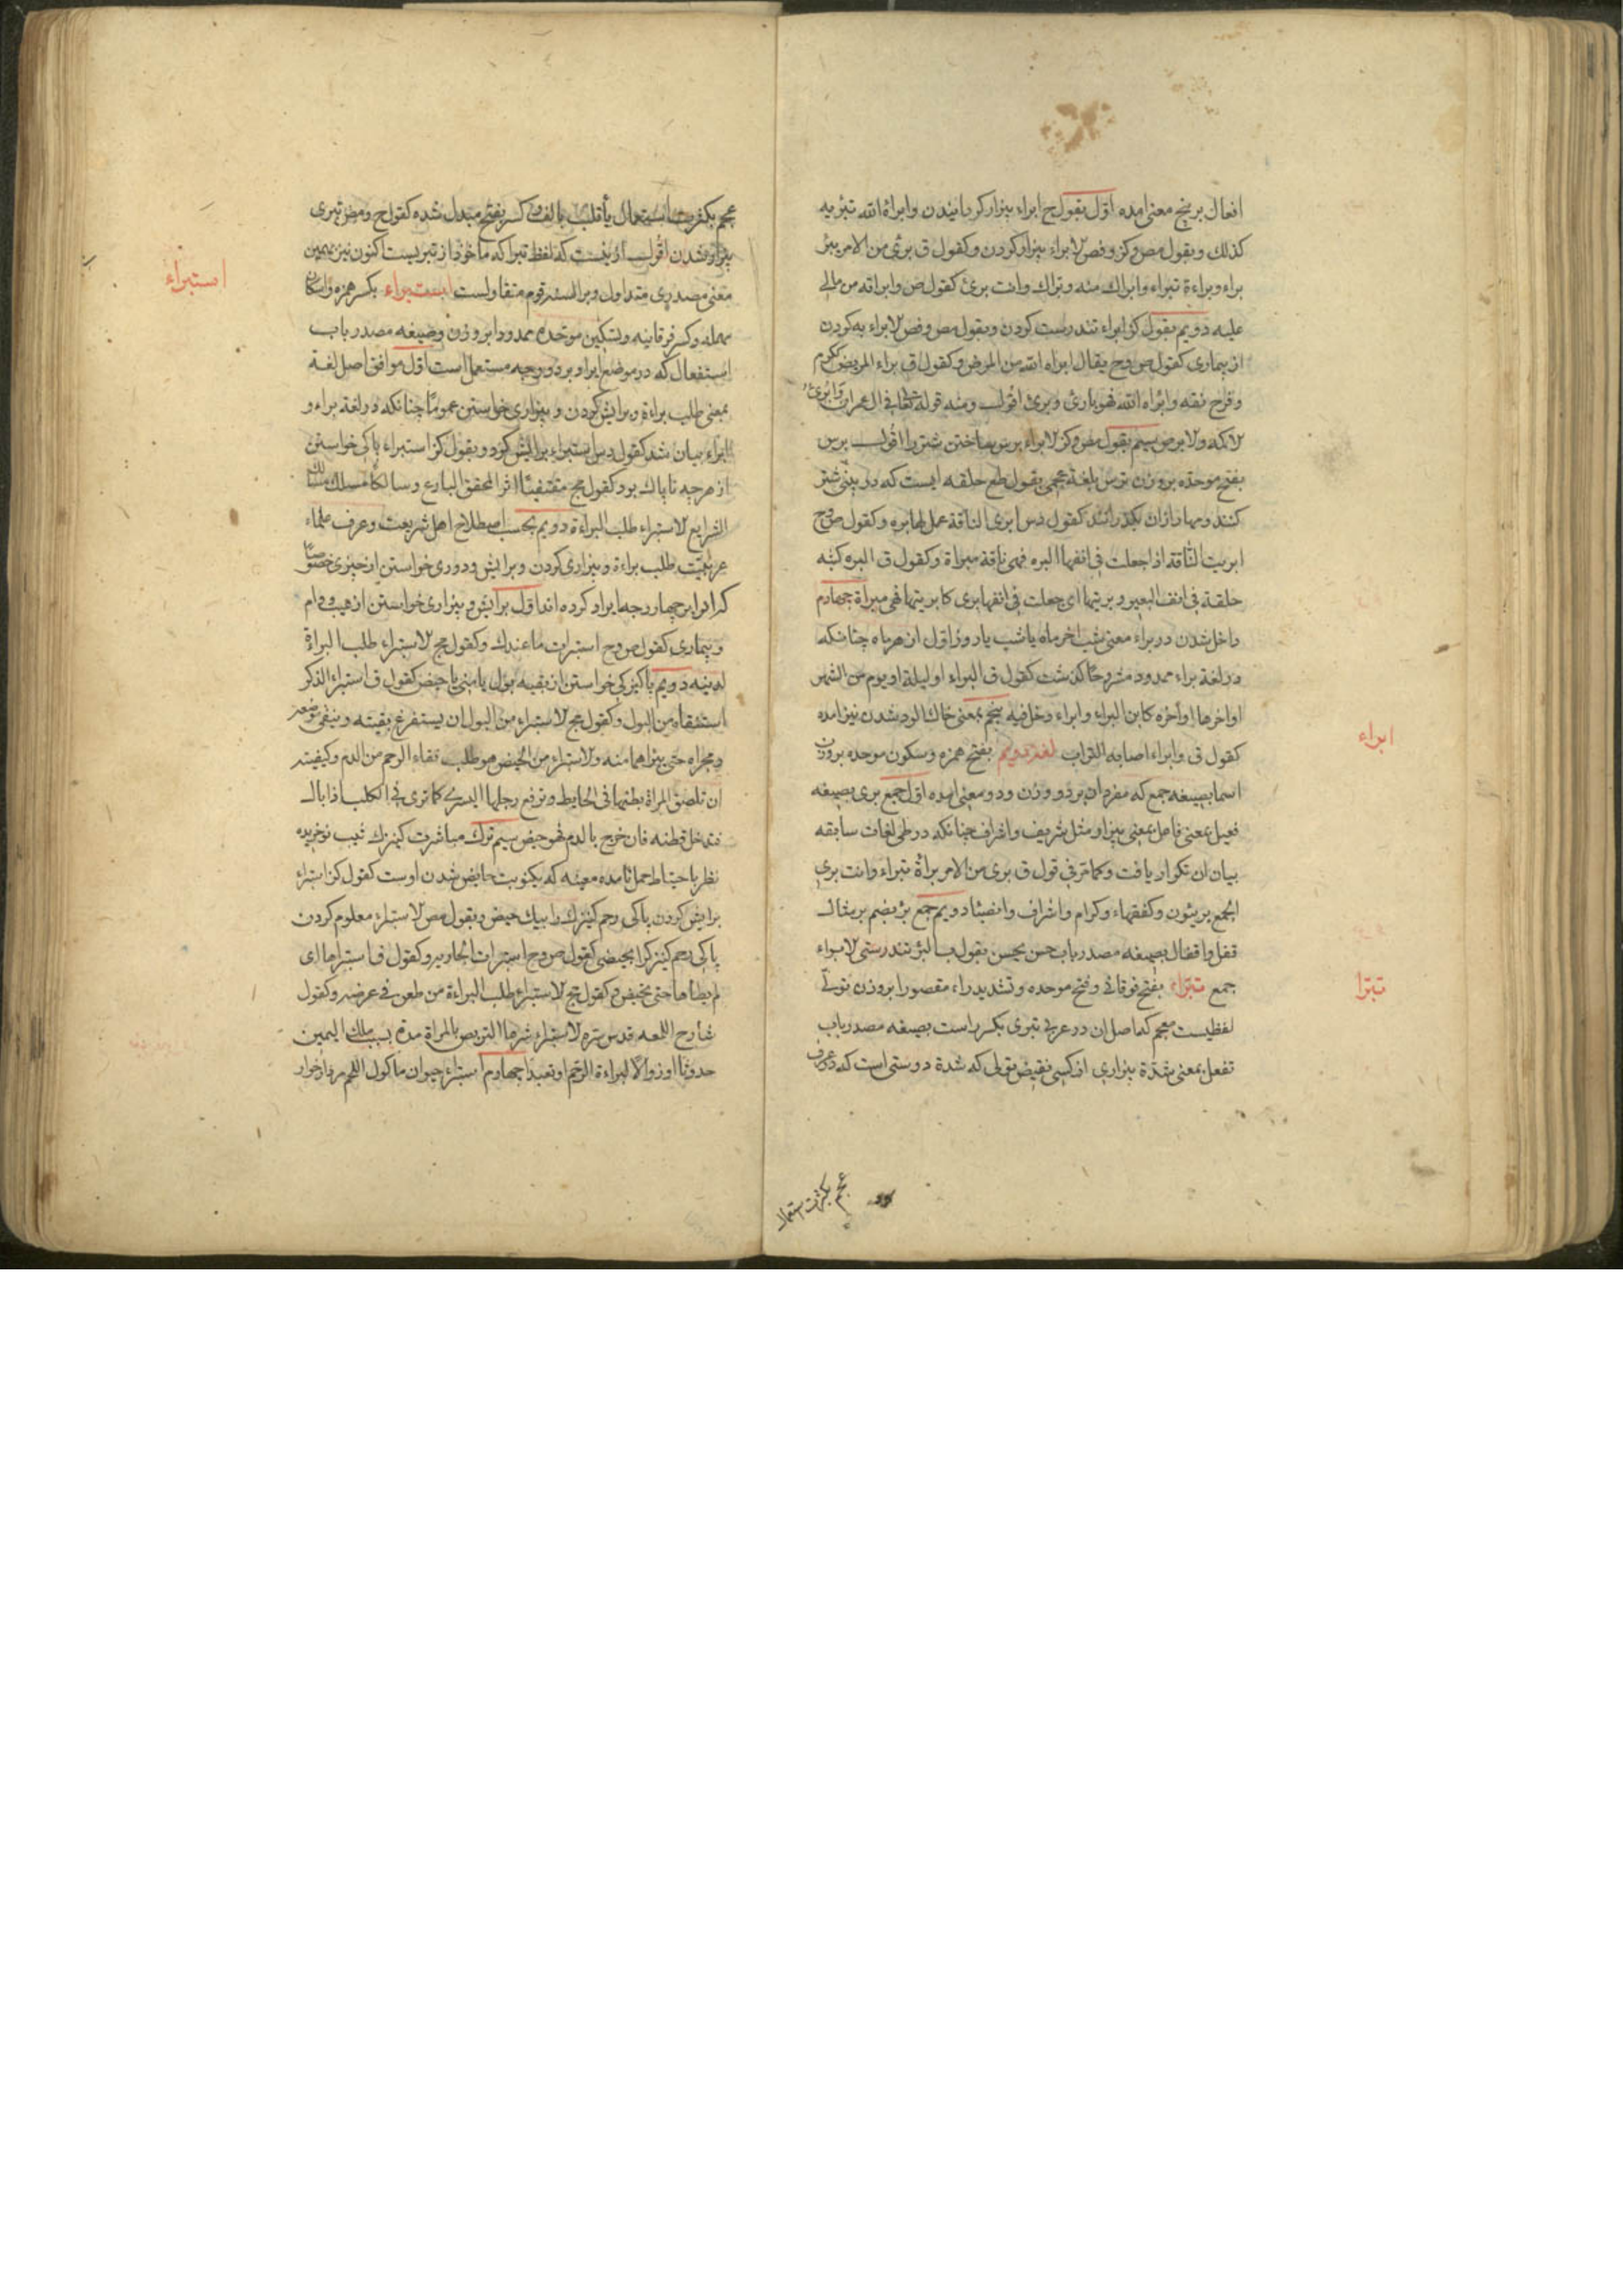 افعال بر پنج معنی امده اوّل بقول ج ابراء بیزار کردانیدن وابراهٔ الله تبرٔیه
کذلک وبقول مص وکز وفص لابراء بیزار کردن وکقول ق برئ من الامر یبرٔ
براء وبراءة تبراء وابراک منه وبراک وانت برئ کقول ض وابراته من مالی
علیه دویم بقول کز ابراء تندرست کردن وبقول مص وفص لابراء به کردن
از بیماری کقول ص وح یقال ابراه الله من المرض وکقول ق براء المریض ککرم
وفرح نقه وابراه الله فهو بارئ وبرئ اقول ومنه قوله تعالی فی ال عمران وابرئ
لاکمه ولابرص سیم بقول مص وکز لابراء برس ساختن شتر را اقول برس
بفتح موحده بر وزن ترس بلغة عجمی بقول طع حلقه ایست که در بینی شتر
کنند ومهار ازان بکذرانند کقول دس ابری الناقة عمل لها بره وکقول ص وح
ابریت الناقة اذا جعلت فی انفها البره فهی ناقة مبراة وکقول ق البره کثبه
حلقة فی انف البعیر وبریتها ای جعلت فی انفها بری کابریتها فهی مبراة چهارم
داخل شدن در براء معنی شب اخر ماه یا شب یا روز اول از هر ماه چنانکه
در لغة براء ممدود مشروحًا کذشت کقول ق البراء اول لیلة او یوم من الشهر
او اخرها او آخره کابن البراء وابراء دخل فیه پنجم بمعنی خاک الود شدن نیز امده
کقول ق وابراء اصابه التراب لغة دویم بفتح همزه وسکون موحده بر وزن
اسما بصیغه جمع که مفرد ان بر دو وزن ودو معنی امده اوّل جمع بری بصیغه
فعیل بمعنی فاعل بمعنی بیزار مثل شریف واشراف چنانکه در طی لغات سابقه
بیان ان تکرار یافت وکما مرّ فی قول ق بری من الامر براة تبراء وانت بری
الجمع بریئون وکفقهاء وکرام واشراف وانصباء دویم جمع برٔ بضم بر مثال
قفل واقفال بصیغه مصدر باب حسن یحسن بقول ب البرٔ تندرستی لابراء
جمع تبرّاء بفتح فوقانی وفتح موحده وتشدید راء مقصورا بر وزن تولّی
لفظیست معجم که اصل ان در عربی تبری بکسر راست بصیغه مصدر باب
تفعل بمعنی شدّة بیزاری از کسی نقیض تولی که شدة دوستی است که در عرف
ابراء
تبرّا
عجم بکثرت استعمال
عجم بکثرت استعمال یا قلب بالف وکسر بفتح مبدل شده کقول ح ومص تبری
بیزار شدن اقول از نیست که لفظ تبرا که ماخوذ از تبریست اکنون نیز بهمین
معنی مصدری متداول وبر السنه قوم متقاولست استبراء بکسر همزه واسکان
مهمله وکسر فوقانیه وتسکین موحده ممدودا بر وزن وصیغه مصدر باب
استفعال که در موضع ایراد بر دو وجه مستعمل است اوّل موافق اصل لغة
بمعنی طلب براءة وبرایش کردن وبیزاری خواستن عمومًا چنانکه در لغة براء و
ابراء بیان شد کقول دس استبراء برایش کرد وبقول کز استبراء پاکی خواستن
از هر چه ناپاک بود کقول مج مقتفیًا اثر المحقق البارع وسالکًا مسلک مسالک
الشرایع لاستبراء طلب البراءة دویم بحسب اصطلاح اهل شریعت وعرف علماء
عربیّت طلب براءة وبیزاری کردن وبرایش ودوری خواستن از چیزی خصوصًا
که انرا بر چهار وجه ایراد کرده اند اوّل برایش وبیزاری خواستن از عیب ووام
وبیماری کقول ص وح استبرات ما عندک وکقول مج لاستبراء طلب البراة
لدینه دویم پاکیزکی خواستن از بقیه بول یا منی یا حیض کقول ق استبراء الذکر
استنقاه من البول وکقول مج لاستبراء من البول ان یستفرغ بقیته وینقی موضعه
ومجراه حتی یبرٔاهما منه ولاستبراء من الحیض هو طلب نقاء الرحم من الدم وکیفیته
ان تلصق المراة بطنها فی الحایط وترفع رجلها الیسری کما تری فی الکلب اذا بال
فتدخل قطنه فان خرج بالدم فهو حیض سیم ترک مباشرت کنیزک ثیب نو خریده
نظر باحتیاط حمل تا مده معینه که یکنوبت حایض شدن اوست کقول کز استبراء
برایش کردن پاکی رحم کنیزک را بیک حیض وبقول مص لاستبراء معلوم کردن
پاکی رحم کنیزک را بحیضی کقول ص وح استبرات الجاریه وکقول ق استبراها ای
لم یطاها حتی تحیض وکقول مج لاستبراء طلب البراءة من طعن فی عرضه وکقول
شارح اللمعه قدس سره لاستبراء شرعا التربص بالمراة مدة بسبب ملک الیمین
حدوثًا او زوالًا لبراءة الرّحم او تعبدًا چهارم استبراء حیوان ماکول اللحم مردار خوار
استبراء